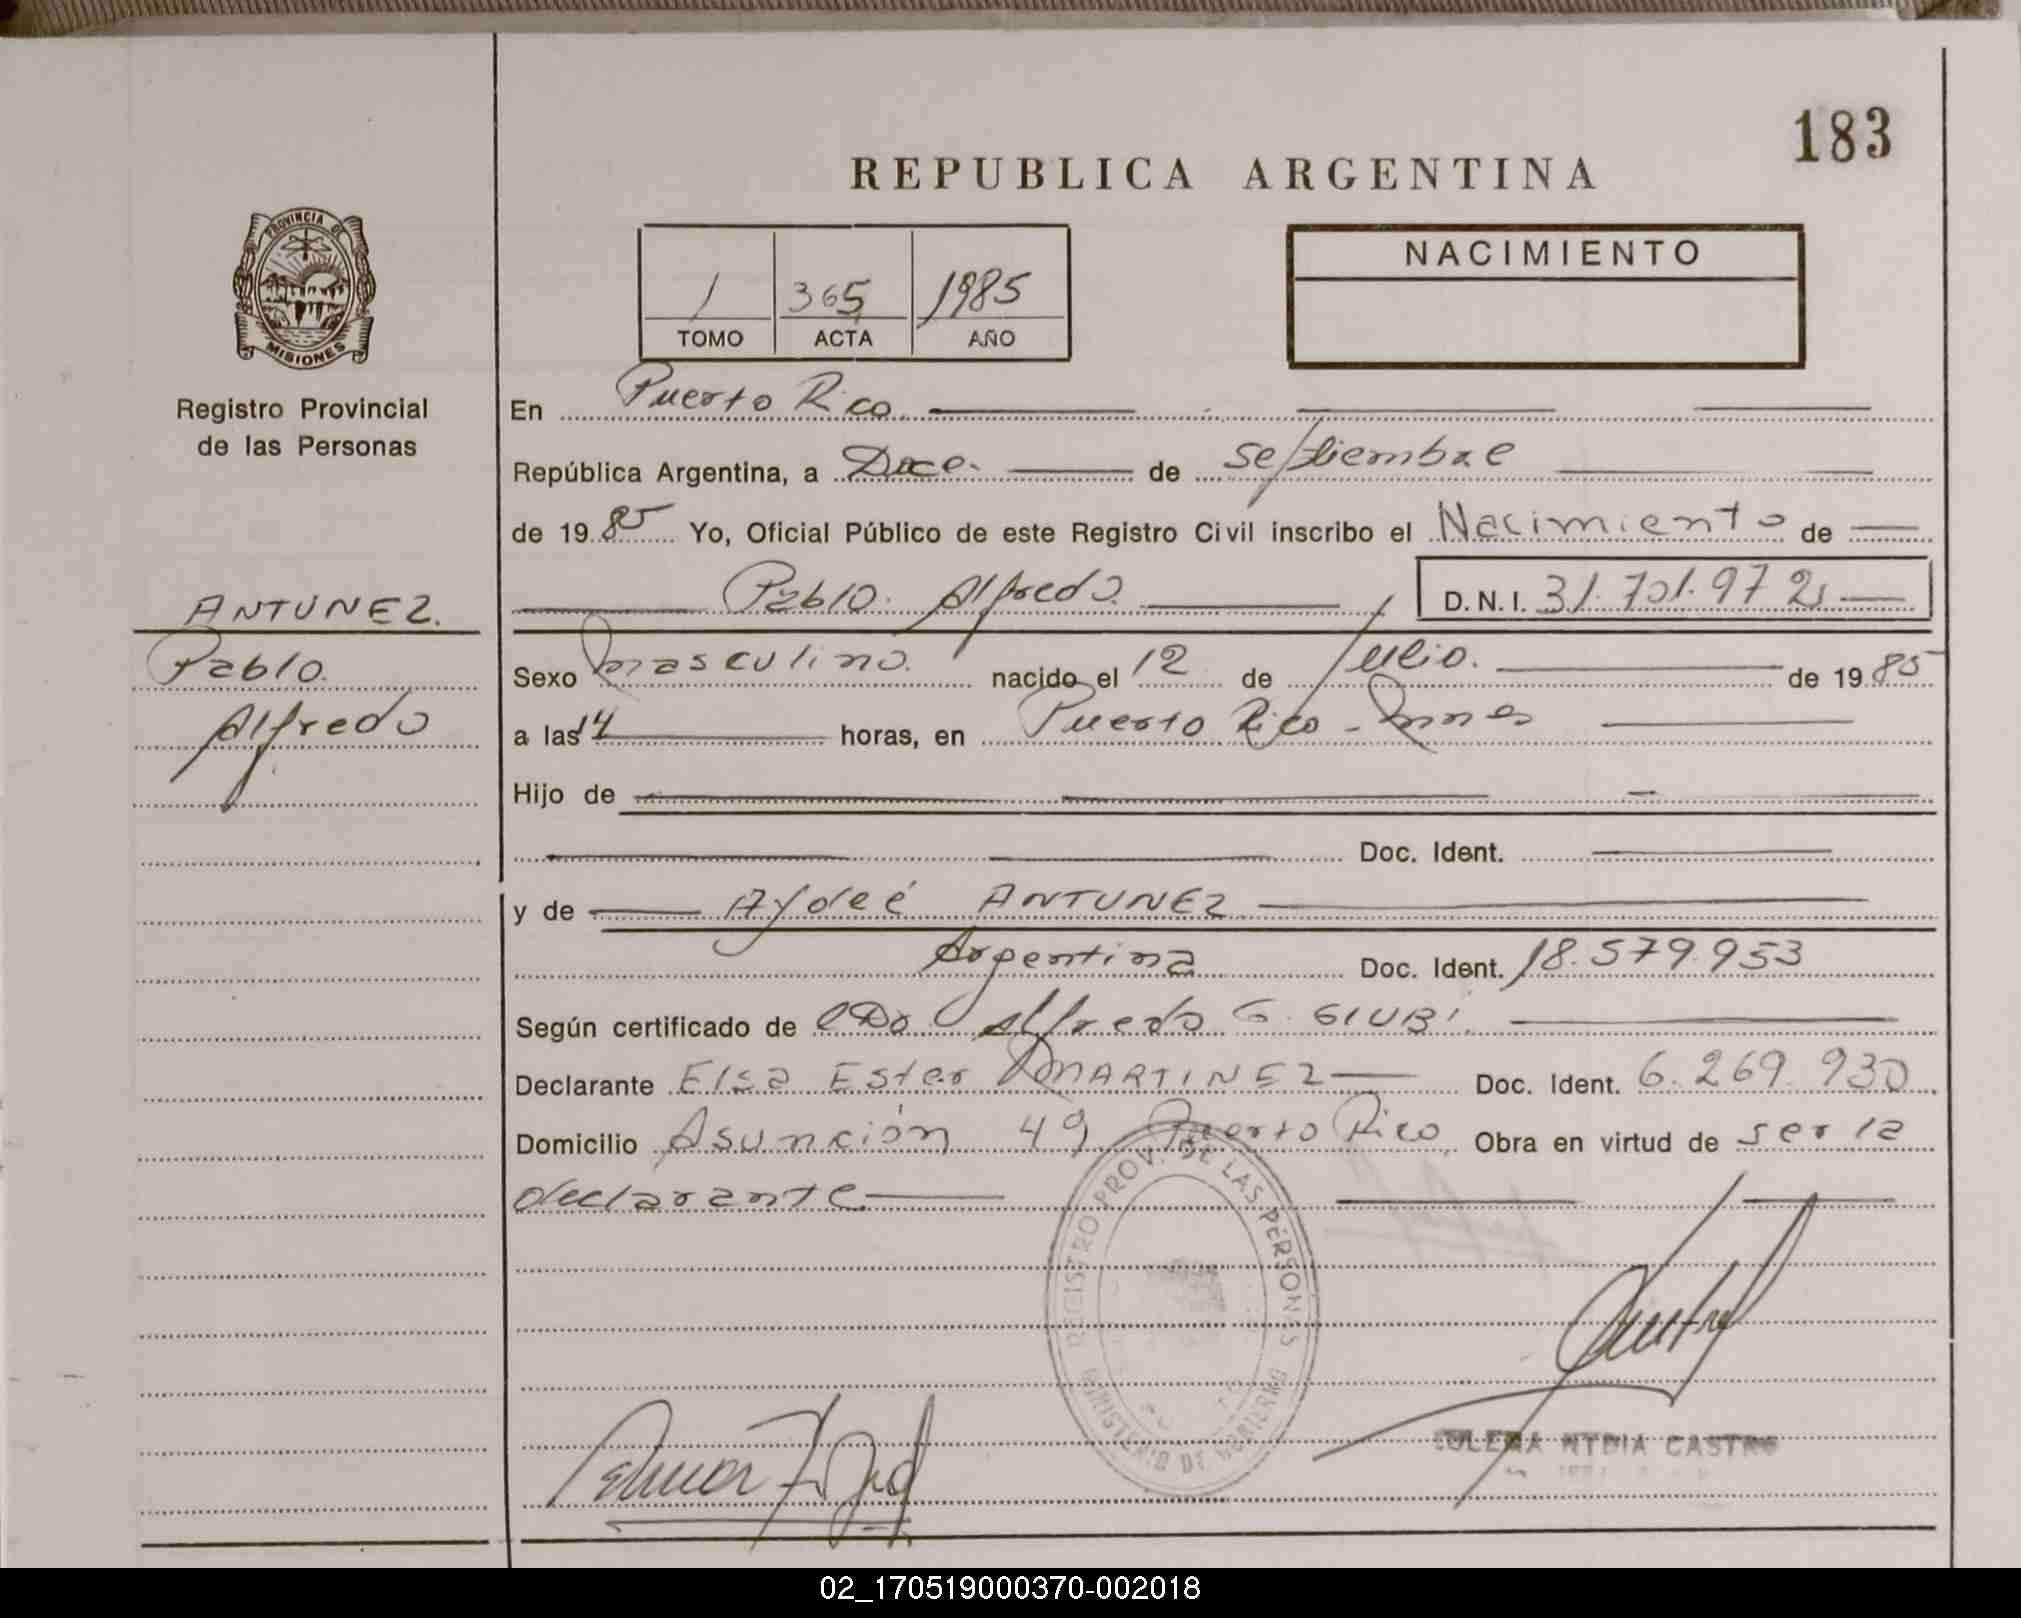 183
REPUBLICA ARGENTINA
PROVINCIA DE
MISIONES
Registro Provincial
de las Personas
1 365 1985
TOMO ACTA AÑO
NACIMIENTO
En Puerto Rico
República Argentina, a Doce de septiembre
de 19 85 Yo, Oficial Público de este Registro Civil inscribo el Nacimiento de
Pablo Alfredo D.N.I. 31.701.972
ANTUNEZ
Pablo
Alfredo
Sexo masculino nacido el 12 de Julio de 19 85
a las 14 horas, en Puerto Rico - Mnes
Hijo de
Doc. Ident.
y de Aydeé ANTUNEZ
Argentina Doc. Ident. 18.579.953
Según certificado de Dr Alfredo G. GIUBI
Declarante Elsa Ester MARTINEZ Doc. Ident. 6.269.930
Domicilio Asunción 49 Puerto Rico Obra en virtud de ser la
declarante
REGISTRO PROV. DE LAS PERSONAS
MINISTERIO DE GOBIERNO
CASTRO
02_170519000370-002018